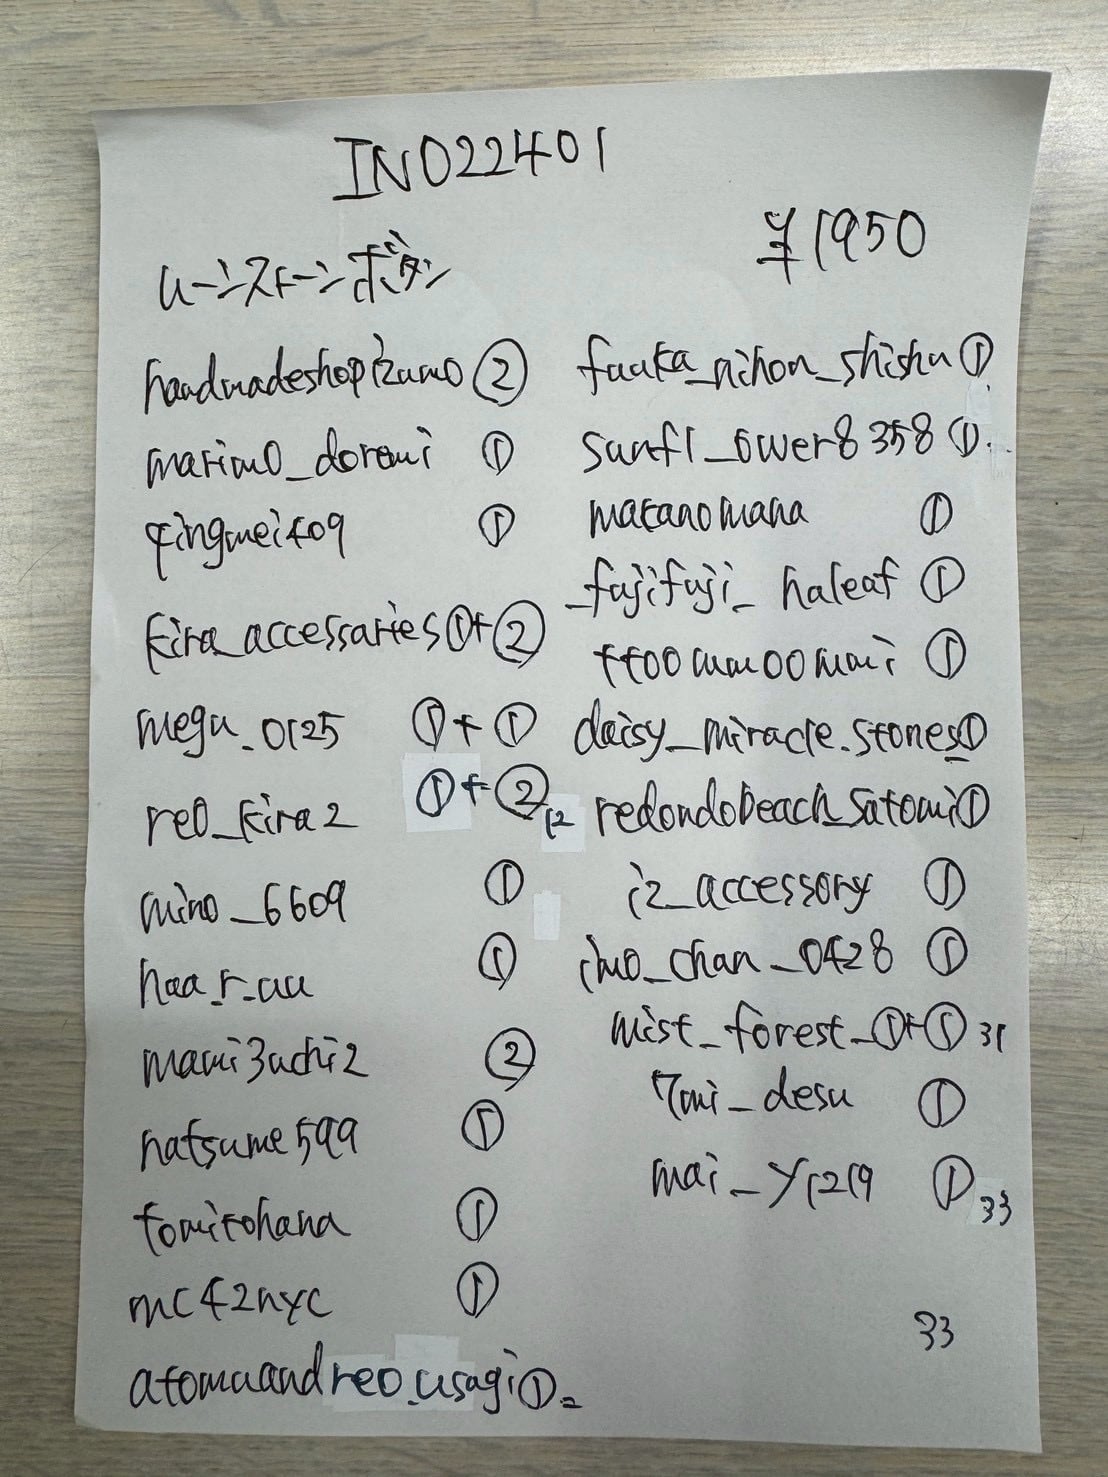 INO22401
¥1950
ムーンストーンボタン
handmadeshopizumo ②
marimo_doremi ①
qingmei409 ①
kira_accessaries ①+②
megu_0125 ①+①
reo_kira2 ①+② 12
mino_6609 ①
haa_r_au ①
mami3uchi2 ②
natsume599 ①
tomitohana ①
mc42nyc ①
atomuandreo_usagi ①
fuuka_nihon_shishu ①
sunfl_ower8358 ①
matanomana ①
_fujifuji_haleaf ①
tt00mm00mmi ①
daisy_miracle.stones ①
redondobeach_satomi ①
i2_accessory ①
imo_chan_0428 ①
mist_forest_ ①+① 31
7mi_desu ①
mai_y1219 ① 33
33